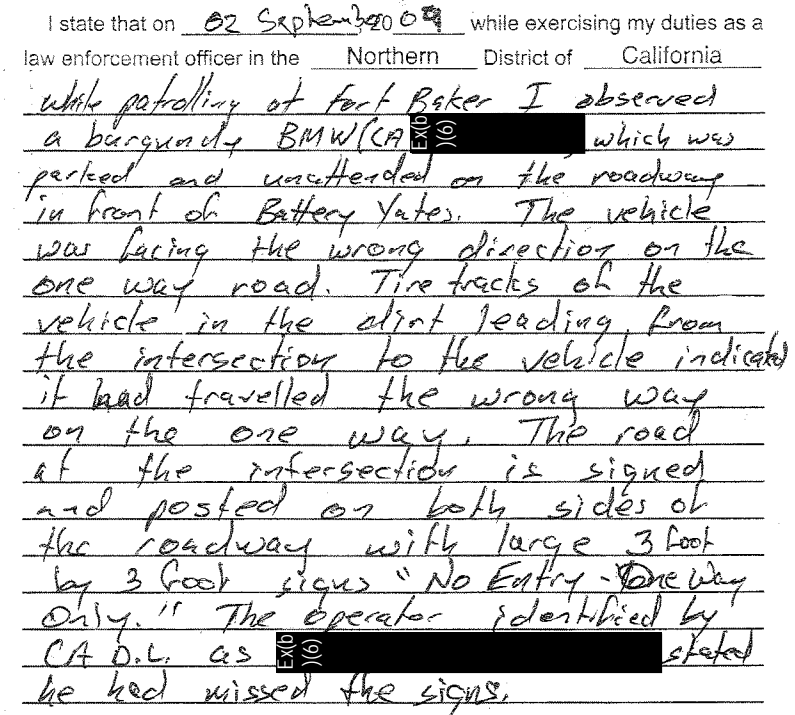 I state that on 02 September, 2009 while exercising my duties as a
law enforcement officer in the Northern District of California
while patrolling at Fort Baker I observed
a burgundy BMW (CA Ex(b)(6) which was
parked and unattended on the roadway
in front of Battery Yates. The vehicle
was facing the wrong direction on the
one way road. Tire tracks of the
vehicle in the dirt leading from
the intersection to the vehicle indicated
it had travelled the wrong way
on the one way. The road
at the intersection is signed
and posted on both sides of
the roadway with large 3 foot
by 3 foot signs "No Entry - One Way
Only." The operator identified by
CA D.L. as Ex(b)(6) stated
he had missed the signs.